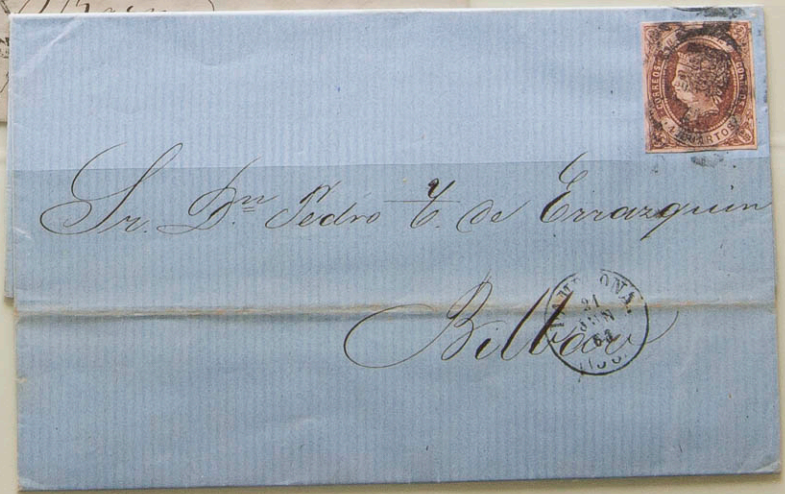 CORREOS
4 CUARTOS
Sr. Dn. Pedro T. de Errazquin
Bilbao
PAMPLONA.
21
JUN